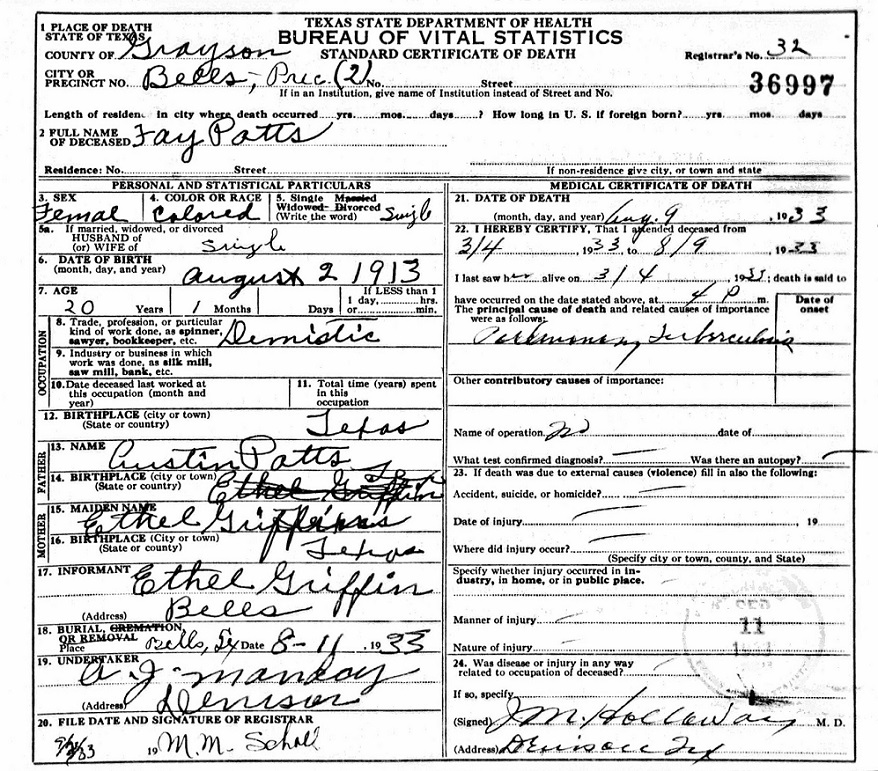 TEXAS STATE DEPARTMENT OF HEALTH
BUREAU OF VITAL STATISTICS
STANDARD CERTIFICATE OF DEATH
1 PLACE OF DEATH
STATE OF TEXAS
COUNTY OF Grayson
Registrar's No. 32
CITY OR
PRECINCT NO. Bells, Prec. (2) No. Street
36997
If in an Institution, give name of Institution instead of Street and No.
Length of residence in city where death occurred yrs. mos. days ? How long in U. S. if foreign born? yrs. mos. days
2 FULL NAME
OF DECEASED Fay Potts
Residence: No. Street If non-residence give city, or town and state
PERSONAL AND STATISTICAL PARTICULARS
3. SEX Femal
4. COLOR OR RACE Colored
5. Single Married
Widowed Divorced
(Write the word) Single
5a. If married, widowed, or divorced
HUSBAND of
(or) WIFE of Single
6. DATE OF BIRTH
(month, day, and year) August 2 1913
7. AGE 20 Years 1 Months Days
If LESS than 1
1 day, hrs.
or min.
OCCUPATION
8. Trade, profession, or particular
kind of work done, as spinner,
sawyer, bookkeeper, etc. Demistic
9. Industry or business in which
work was done, as silk mill,
saw mill, bank, etc.
10. Date deceased last worked at
this occupation (month and
year)
11. Total time (years) spent
in this
occupation
12. BIRTHPLACE (city or town)
(State or country) Texas
FATHER
13. NAME Austin Potts
14. BIRTHPLACE (city or town)
(State or county) Ethel Griffin
MOTHER
15. MAIDEN NAME Ethel Griffin
16. BIRTHPLACE (City or town)
(State or county) Texas
17. INFORMANT Ethel Griffin
(Address) Bells
18. BURIAL, CREMATION
OR REMOVAL
Place Bells, Tx Date 8-11, 1933
19. UNDERTAKER A. J.
(Address) Denison
20. FILE DATE AND SIGNATURE OF REGISTRAR
19 M.M. Scholl
MEDICAL CERTIFICATE OF DEATH
21. DATE OF DEATH
(month, day, and year) Aug. 9, 1933
22. I HEREBY CERTIFY, That I attended deceased from
3/4, 1933 to 8/9, 1933
I last saw her alive on 3/4, 1933; death is said to
have occurred on the date stated above, at 4 P m.
The principal cause of death and related causes of importance
were as follows:
Date of
onset
Tuberculosis
Other contributory causes of importance:
Name of operation no date of
What test confirmed diagnosis? Was there an autopsy?
23. If death was due to external causes (violence) fill in also the following:
Accident, suicide, or homicide?
Date of injury , 19
Where did injury occur?
(Specify city or town, county, and State)
Specify whether injury occurred in in-
dustry, in home, or in public place.
Manner of injury
Nature of injury
11
24. Was disease or injury in any way
related to occupation of deceased?
If so, specify
(Signed) J M Holloway M. D.
(Address) Denison Tex